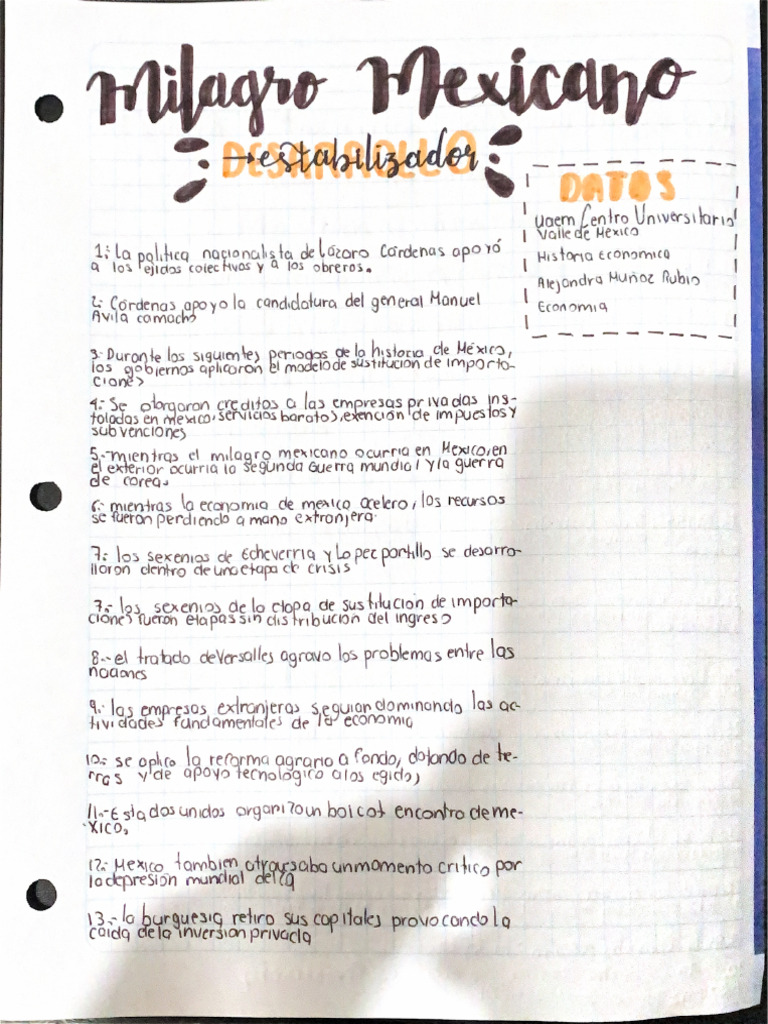 Milagro Mexicano
DESARROLLO
→estabilizador
DATOS
Uaem Centro Universitario
Valle de Mexico
Historia economica
Alejandra Muñoz Rubio
Economia
1.- La politica nacionalista de Lázaro Cárdenas apoyó
a los ejidos colectivos y a los obreros.
2.- Cárdenas apoyo la candidatura del general Manuel
Avila camacho
3.- Durante los siguientes periodos de la historia de México,
los gobiernos aplicaron el modelo de sustitucion de importa-
ciones
4.- Se otorgaron creditos a las empresas privadas ins-
taladas en mexico, servicios baratos, exención de impuestos y
subvenciones
5.- mientras el milagro mexicano ocurria en Mexico, en
el exterior ocurria la segunda Guerra mundial y la guerra
de corea.
6.- mientras la economia de mexico acelero, los recursos
se fueron perdiendo a mano extranjera.
7.- los sexenios de Echeverria y Lopez portillo se desarro-
llaron dentro de una etapa de crisis
7.- los sexenios de la etapa de sustitucion de importa-
ciones fueron etapas sin distribucion del ingreso
8.- el tratado de Versalles agravo los problemas entre las
naciones
9.- las empresas extranjeras seguian dominando las ac-
tividades fundamentales de la economia
10.- se aplico la reforma agraria a fondo, dotando de te-
rras y de apoyo tecnologico a los egidos
11.- Estados unidos organizo un boicot encontra de me-
xico.
12.- Mexico tambien atravsaba un momento critico por
la depresion mundial del 29
13.- la burguesia retiro sus capitales provocando la
caida de la inversion privada